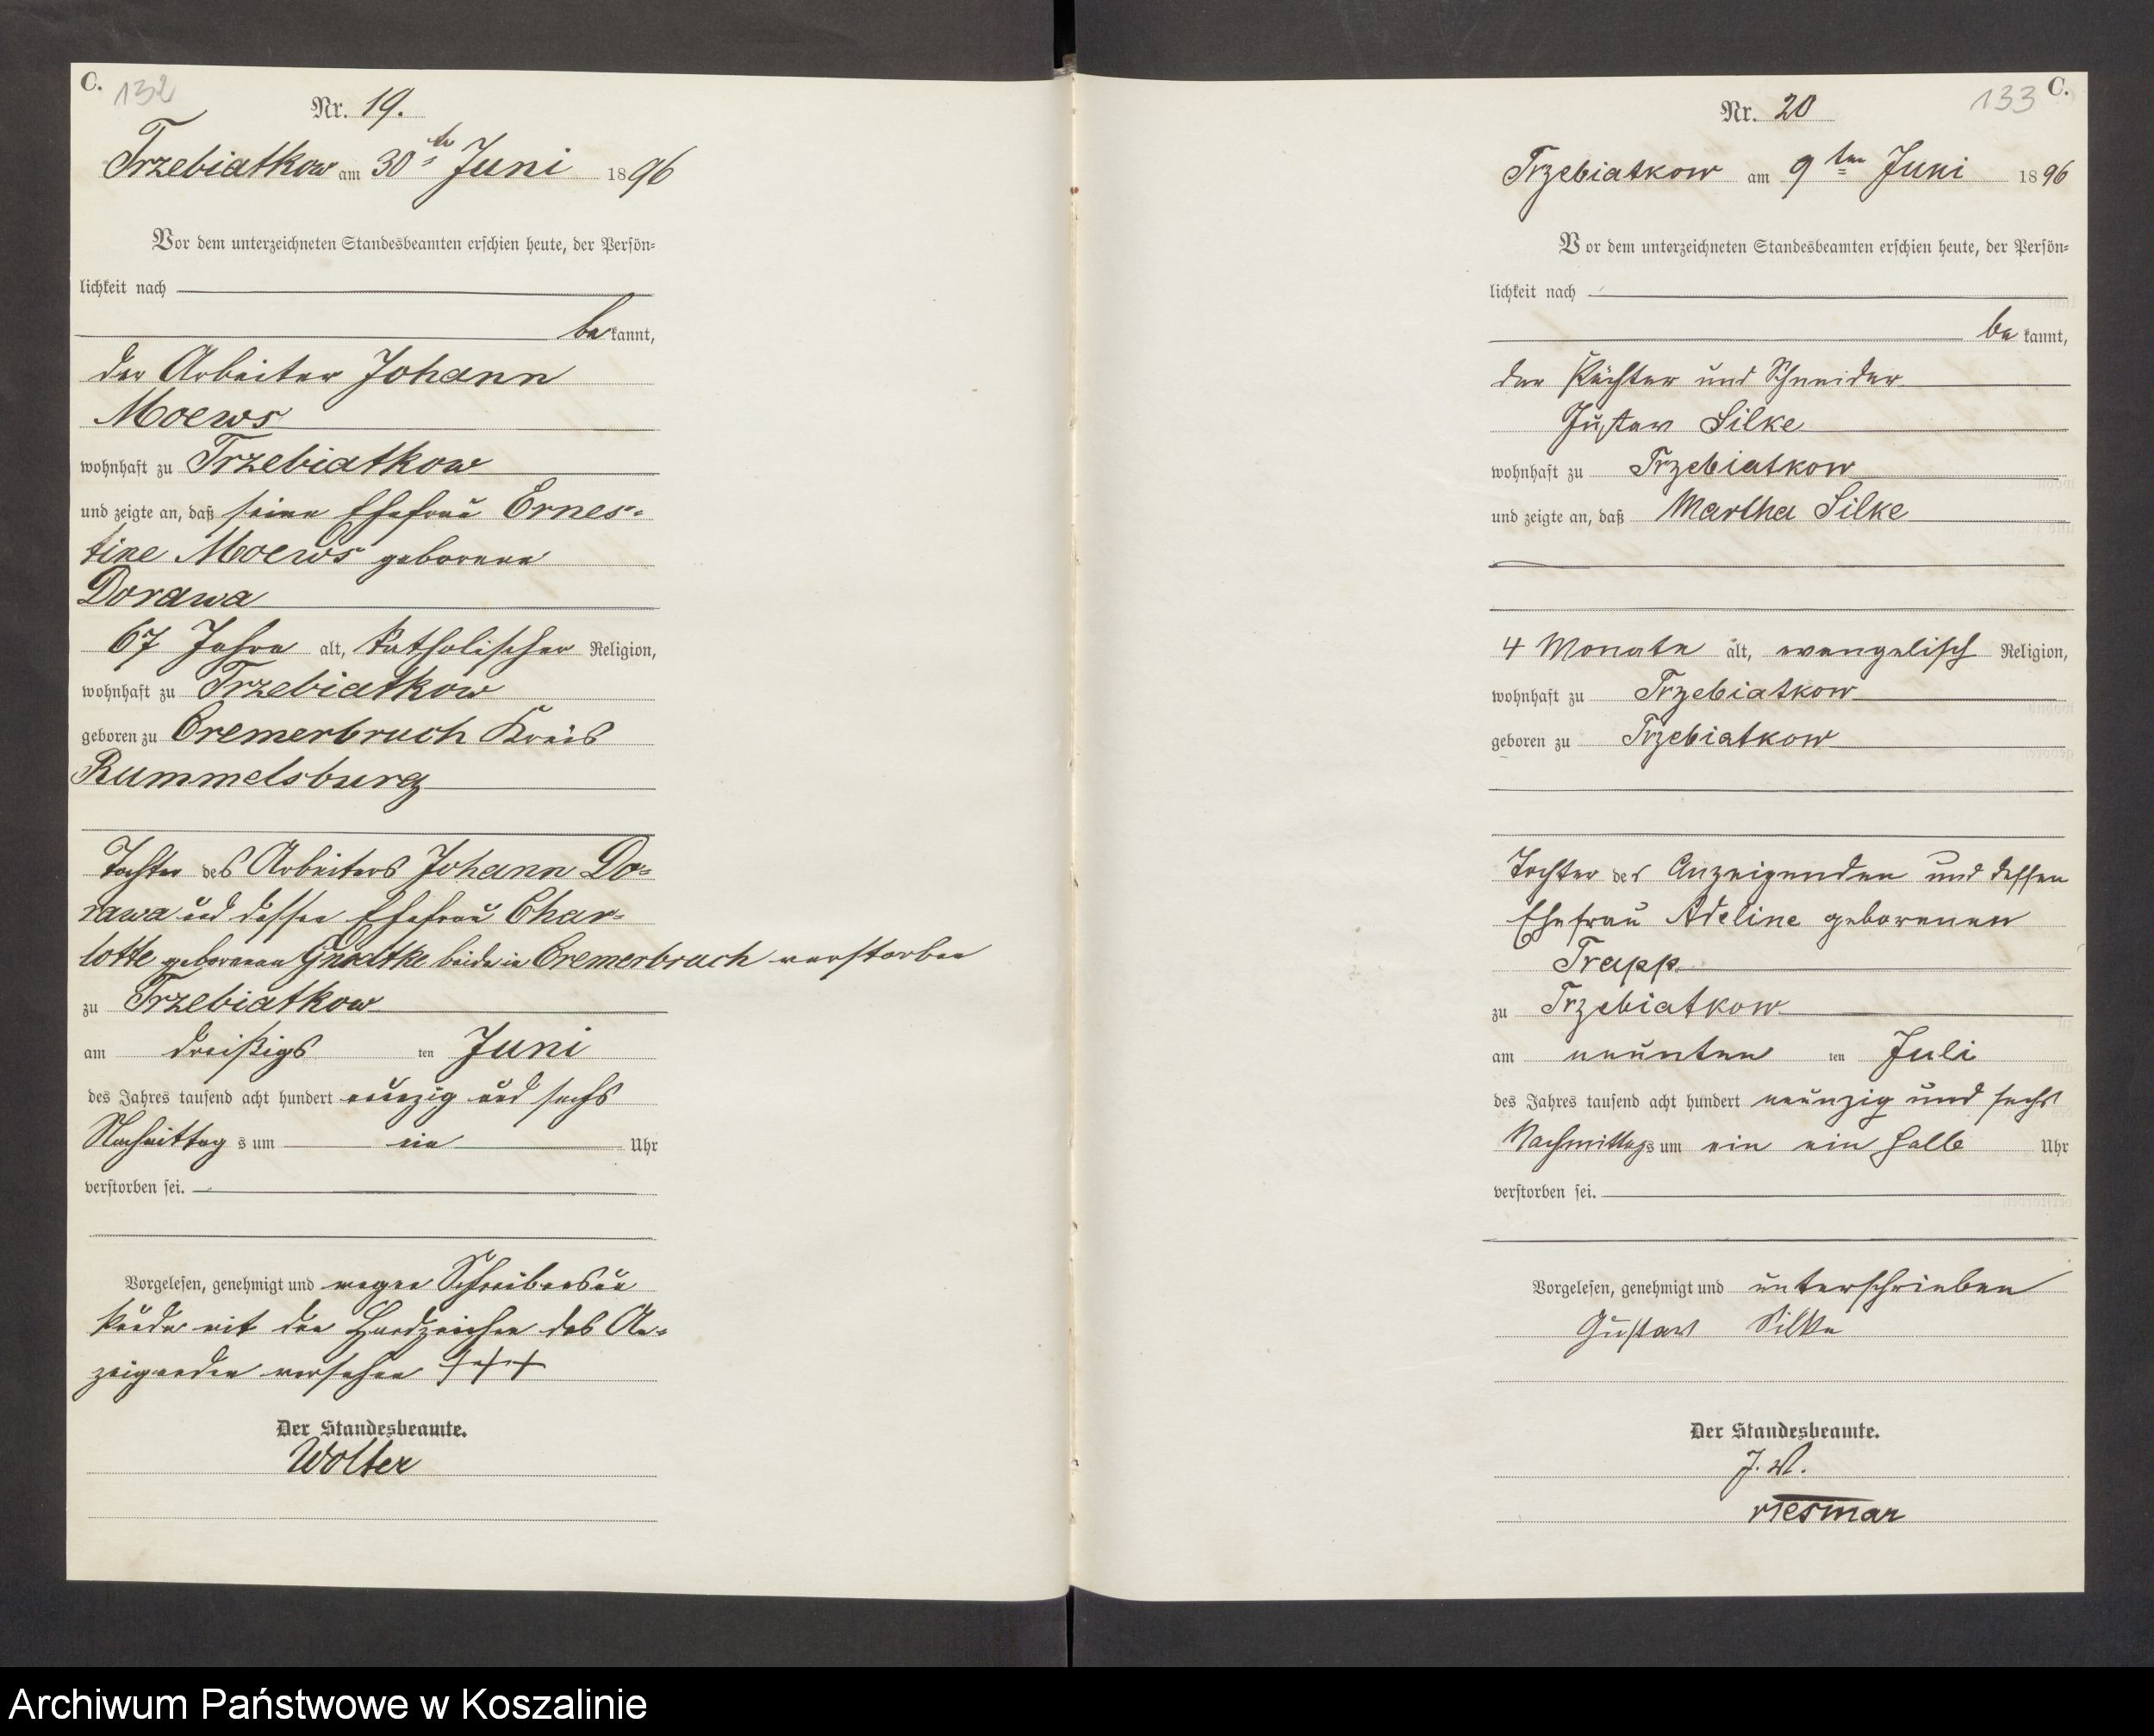 C.
132
Nr. 19.
Trzebiatkow am 30ten Juni 1896
Vor dem unterzeichneten Standesbeamten erschien heute, der Persön-
lichkeit nach
bekannt,
der Arbeiter Johann
Moews
wohnhaft zu Trzebiatkow
und zeigte an, daß seine Ehefrau Ernes-
tine Moews geborene
Dorawa
67 Jahre alt, katholischer Religion,
wohnhaft zu Trzebiatkow
geboren zu Cremerbruch Kreis
Rummelsburg
Tochter des Arbeiters Johann Do-
rawa und dessen Ehefrau Char-
lotte geborenen beide in Cremerbruch verstorben
zu Trzebiatkow
am dreißigs ten Juni
des Jahres tausend acht hundert neunzig und sechs
Nachmittag s um ein Uhr
verstorben sei.
Vorgelesen, genehmigt und wegen Schreibensun
kunde mit den Handzeichen des An-
zeigenden versehen +++
Der Standesbeamte.
Wolter
133
C.
Nr. 20
Trzebiatkow am 9ten Juni 1896
Vor dem unterzeichneten Standesbeamten erschien heute, der Persön-
lichkeit nach
bekannt,
der Pächter und Schneider
Gustav Silke
wohnhaft zu Trzebiatkow
und zeigte an, daß Martha Silke
4 Monate alt, evangelisch Religion,
wohnhaft zu Trzebiatkow
geboren zu Trzebiatkow
Tochter des Anzeigenden und dessen
Ehefrau Adeline geborenen
Trapp
zu Trzebiatkow
am neunten ten Juli
des Jahres tausend acht hundert neunzig und sechs
Nachmittags um ein ein halb Uhr
verstorben sei.
Vorgelesen, genehmigt und unterschrieben
Gustav Silke
Der Standesbeamte.
J. V.
Archiwum Państwowe w Koszalinie